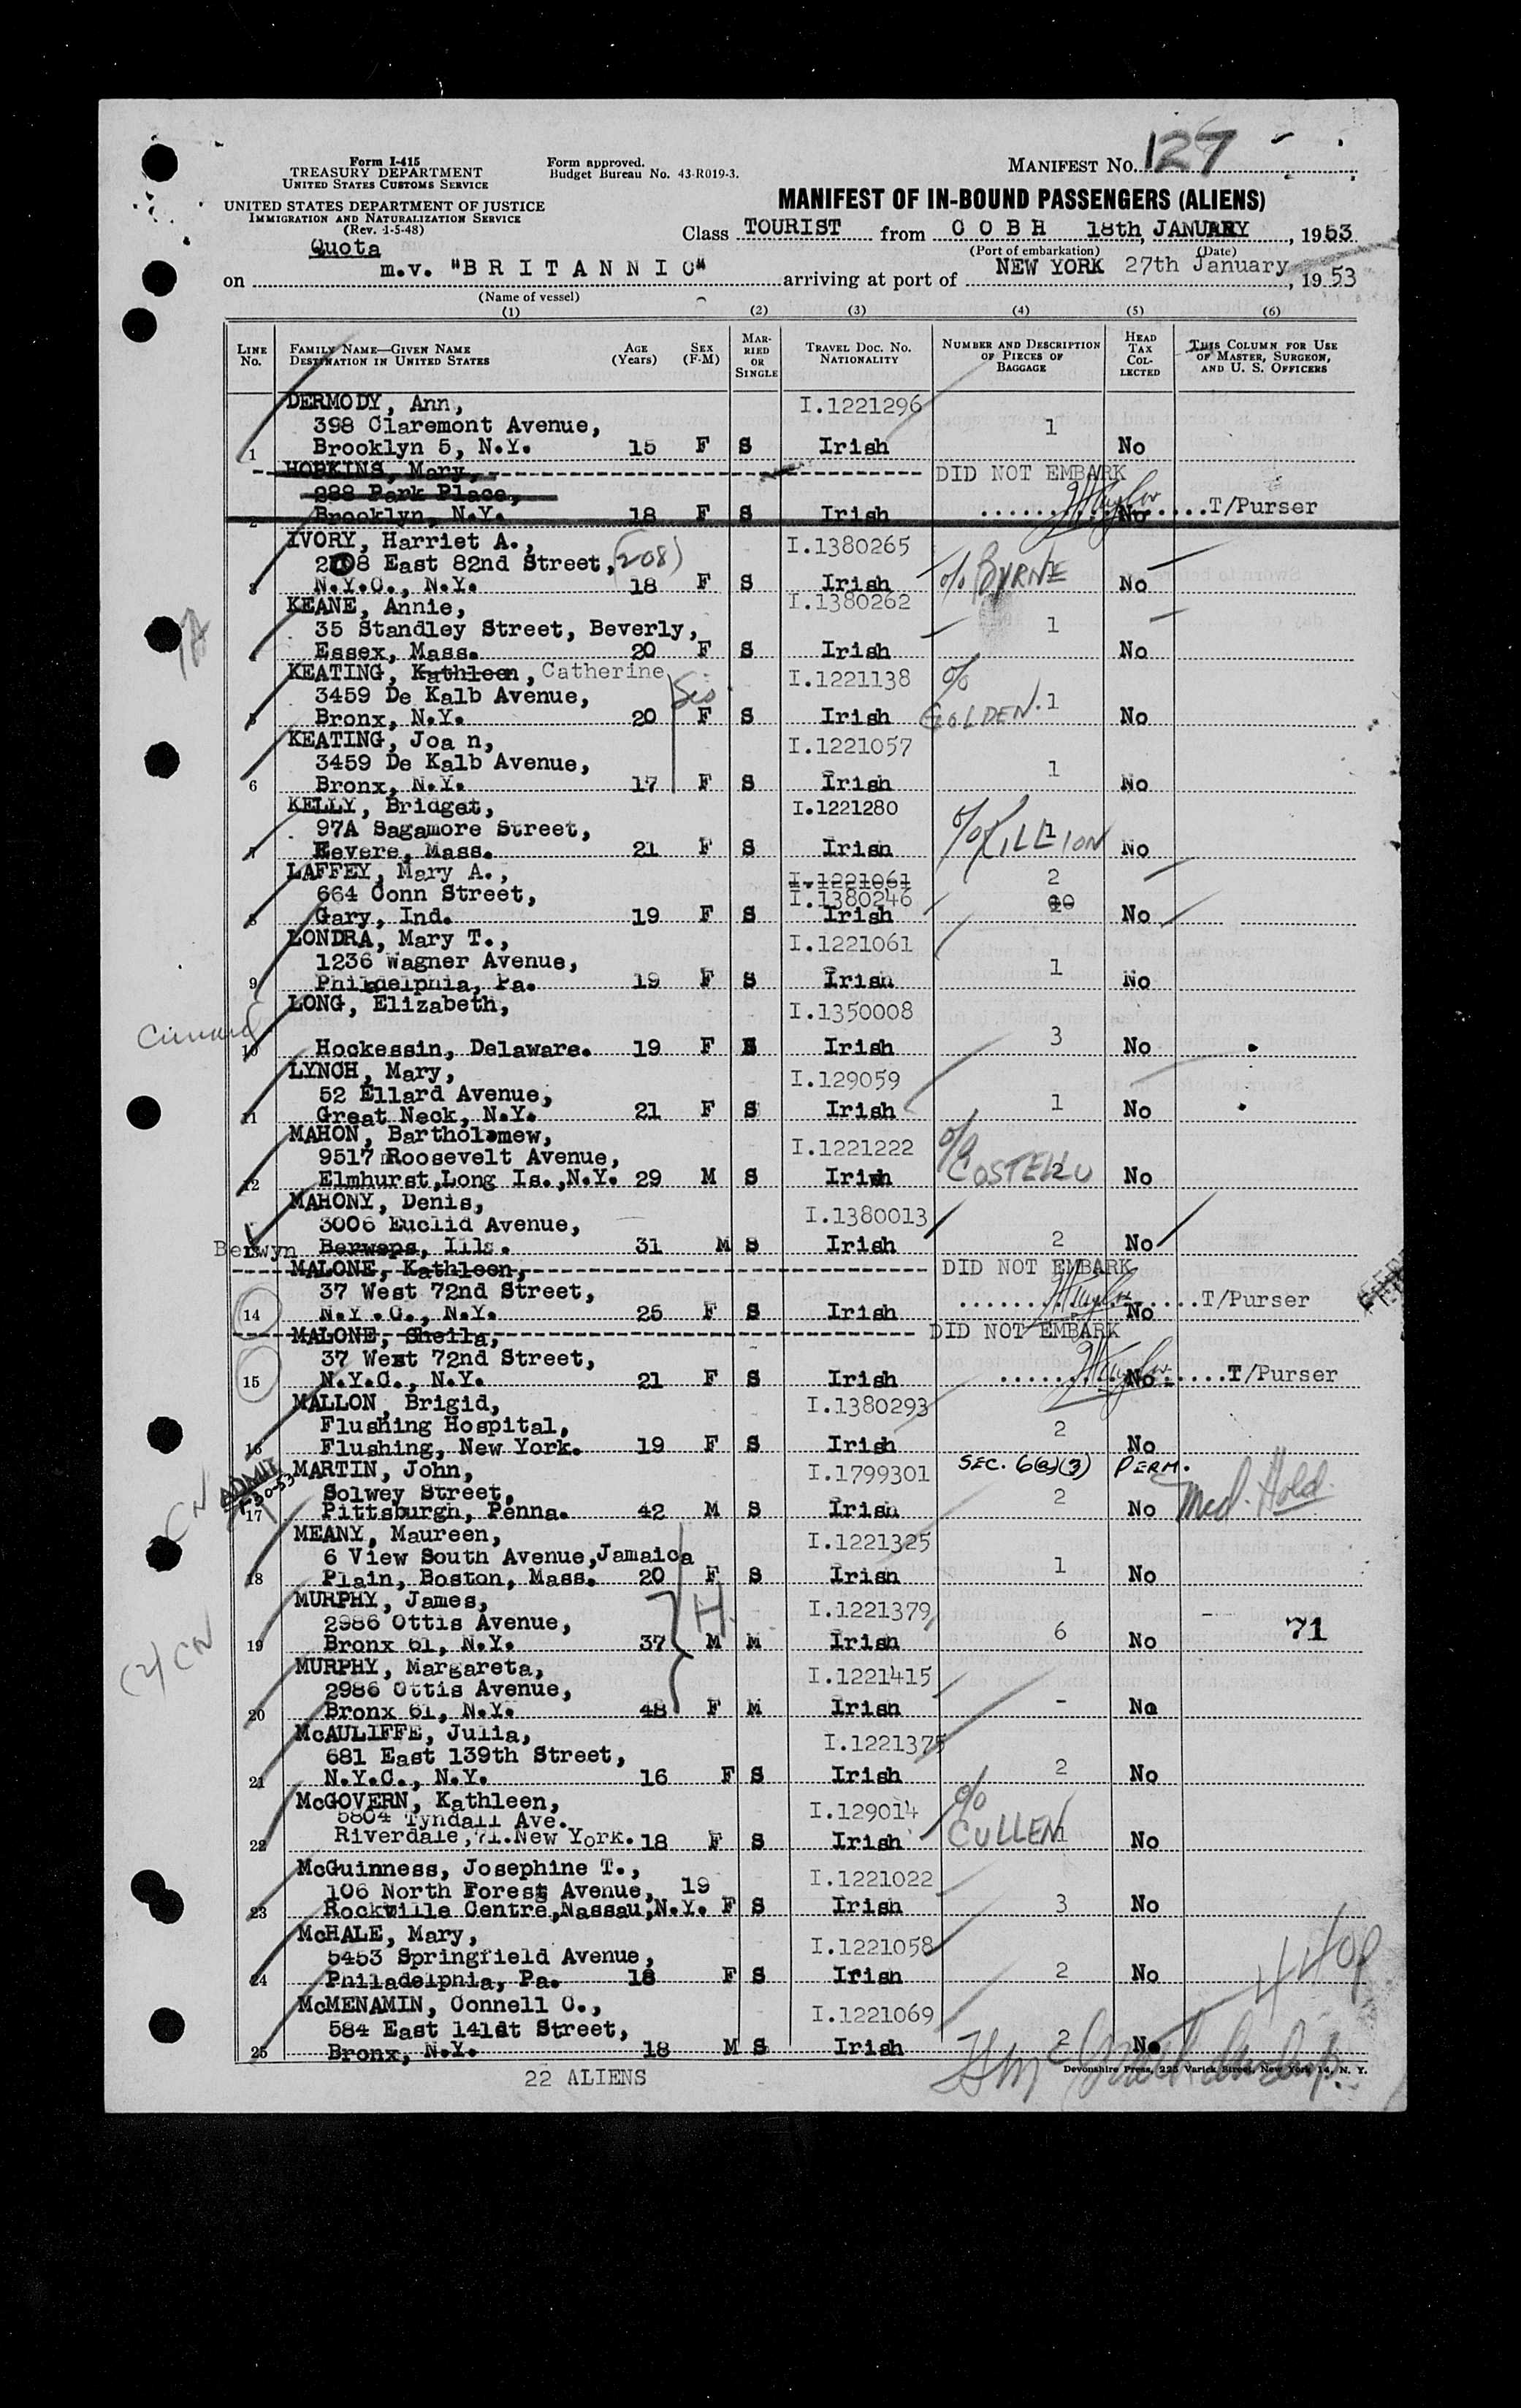 Form I-415
TREASURY DEPARTMENT
UNITED STATES CUSTOMS SERVICE
UNITED STATES DEPARTMENT OF JUSTICE
IMMIGRATION AND NATURALIZATION SERVICE
(Rev. 1-5-48)
Form approved.
Budget Bureau No. 43-R019-3.
MANIFEST No. 127
MANIFEST OF IN-BOUND PASSENGERS (ALIENS)
Class TOURIST from COBH 18th, JANUARY, 1953
(Port of embarkation) (Date)
Quota
on m.v. "BRITANNIC" arriving at port of NEW YORK 27th January, 1953
(Name of vessel)
(1) (2) (3) (4) (5) (6)
LINE No. FAMILY NAME—GIVEN NAME DESTINATION IN UNITED STATES AGE (Years) SEX (F-M) MARRIED OR SINGLE TRAVEL DOC. NO. NATIONALITY NUMBER AND DESCRIPTION OF PIECES OF BAGGAGE HEAD TAX COLLECTED THIS COLUMN FOR USE OF MASTER, SURGEON, AND U. S. OFFICERS
DERMODY, Ann, I.1221296
398 Claremont Avenue, 1
1 Brooklyn 5, N.Y. 15 F S Irish No
HOPKINS, Mary, DID NOT EMBARK
288 Park Place,
2 Brooklyn, N.Y. 18 F S Irish No T/Purser
IVORY, Harriet A., I.1380265
2108 East 82nd Street, (208) 1
3 N.Y.C., N.Y. 18 F S Irish c/o BYRNE No
KEANE, Annie, I.1380262
35 Standley Street, Beverly, 1
4 Essex, Mass. 20 F S Irish No
KEATING, Kathleen, Catherine I.1221138 c/o
3459 De Kalb Avenue, Sis 1
5 Bronx, N.Y. 20 F S Irish GOLDEN. No
KEATING, Joa n, I.1221057
3459 De Kalb Avenue, 1
6 Bronx, N.Y. 17 F S Irish No
KELLY, Bridget, I.1221280
97A Sagamore Street, c/o KILLION 1
7 Revere, Mass. 21 F S Irish No
LAFFEY, Mary A., I.1221061 2
664 Conn Street, I.1380246
8 Gary, Ind. 19 F S Irish No
LONDRA, Mary T., I.1221061
1236 Wagner Avenue, 1
9 Philadelphia, Pa. 19 F S Irish No
LONG, Elizabeth, I.1350008
Cunard 3
10 Hockessin, Delaware. 19 F S Irish No
LYNCH, Mary, I.129059
52 Ellard Avenue, 1
11 Great Neck, N.Y. 21 F S Irish No
MAHON, Bartholomew, I.1221222 c/o
9517 Roosevelt Avenue, COSTELLO 2
12 Elmhurst,Long Is.,N.Y. 29 M S Irish No
MAHONY, Denis, I.1380013
3006 Euclid Avenue, 2
Berwyn Berweps, Ills. 31 M S Irish No
MALONE, Kathleen, DID NOT EMBARK
37 West 72nd Street,
14 N.Y.C., N.Y. 25 F S Irish No T/Purser
MALONE, Sheila, DID NOT EMBARK
37 West 72nd Street,
15 N.Y.C., N.Y. 21 F S Irish No T/Purser
MALLON, Brigid, I.1380293
Flushing Hospital, 2
16 Flushing, New York. 19 F S Irish No
CN ADMIT 1-30-53 MARTIN, John, I.1799301 SEC. 6(a)(3) PERM.
Solwey Street, 2 Med. Hold.
17 Pittsburgh, Penna. 42 M S Irish No
MEANY, Maureen, I.1221325
6 View South Avenue,Jamaica 1
18 Plain, Boston, Mass. 20 F S Irish No
MURPHY, James, I.1221379
2986 Ottis Avenue, H. 6 71
(2) CN 19 Bronx 61, N.Y. 37 M M Irish No
MURPHY, Margareta, I.1221415
2986 Ottis Avenue, -
20 Bronx 61, N.Y. 48 F M Irish No
McAULIFFE, Julia, I.1221375
681 East 139th Street, 2
21 N.Y.C., N.Y. 16 F S Irish No
McGOVERN, Kathleen, I.129014 c/o
5804 Tyndall Ave. CULLEN 1
22 Riverdale,71.New York. 18 F S Irish No
McGuinness, Josephine T., I.1221022
106 North Forest Avenue, 19 3
23 Rockville Centre,Nassau,N.Y. F S Irish No
McHALE, Mary, I.1221058
5453 Springfield Avenue, 2
24 Philadelphia, Pa. 18 F S Irish No
McMENAMIN, Connell C., I.1221069
584 East 141st Street, 2
25 Bronx, N.Y. 18 M S Irish No
22 ALIENS
Devonshire Press, 225 Varick Street, New York 14, N. Y.